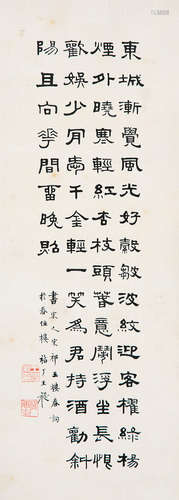 東城漸覺風光好縠皺波紋迎客櫂綠楊
煙外曉寒輕紅杏枝頭春意鬧浮生長恨
歡娛少肎愛千金輕一笑為君持酒勸斜
陽且向華間畱晚照
書宋人宋祁玉樓春詞
於春住樓 福厂王禔